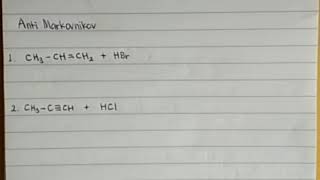 Anti Markovnikov
1. CH₃-CH=CH₂ + HBr
2. CH₃-C≡CH + HCl